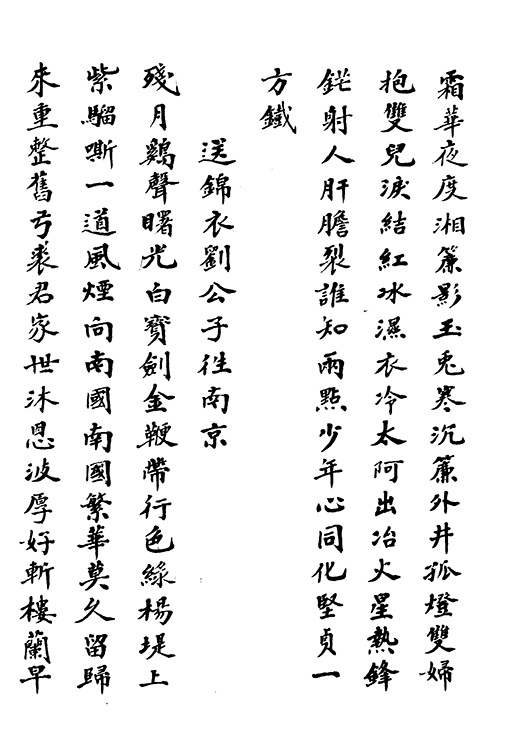 霜華夜度湘簾影玉兎寒沉簾外井孤燈雙婦
抱雙兒淚結紅冰濕衣冷太阿出冶火星熱鋒
鋩射人肝膽裂誰知兩點少年心同化堅貞一
方鐵
送錦衣劉公子徃南京
殘月鷄聲曙光白寶劍金鞭帶行色綠楊堤上
紫騮嘶一道風煙向南國南國繁華莫久留歸
來重整舊弓裘君家世沐恩波厚好斬樓蘭早